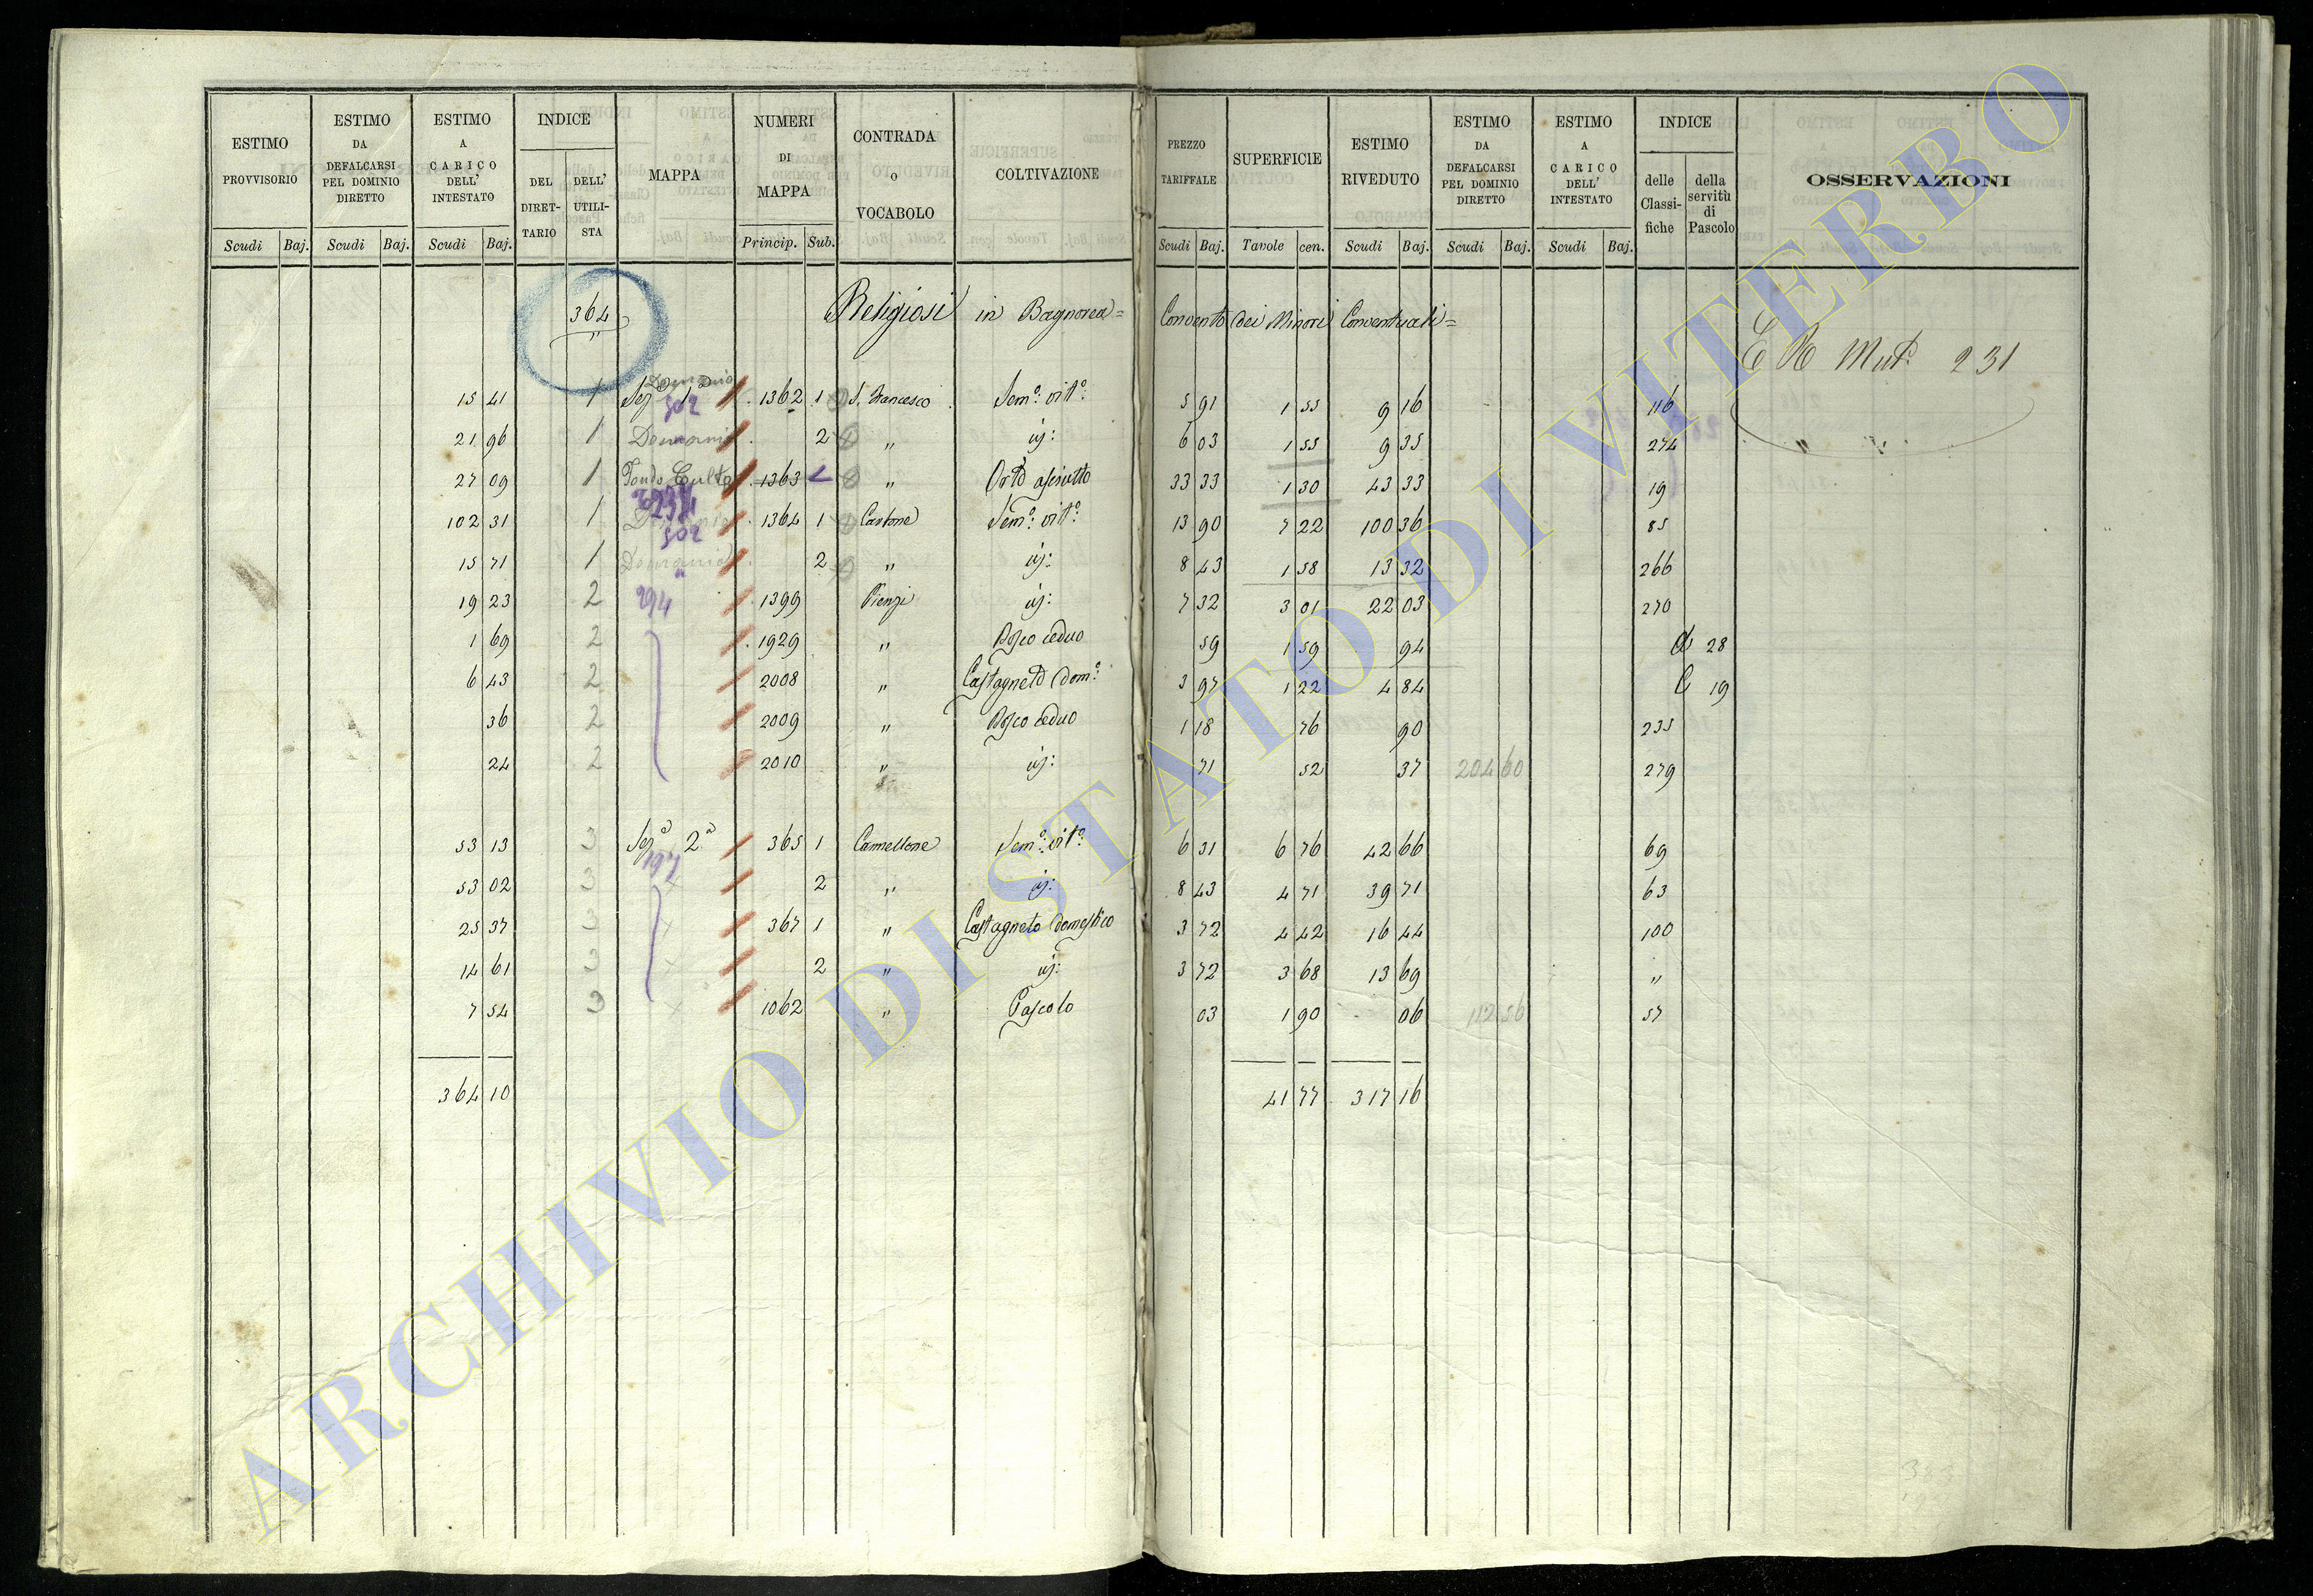 ESTIMO PROVVISORIO | ESTIMO DA DEFALCARSI PEL DOMINIO DIRETTO | ESTIMO A CARICO DELL' INTESTATO | INDICE DEL DIRET-TARIO | DELL' UTILI-STA | MAPPA | NUMERI DI MAPPA | CONTRADA O VOCABOLO | COLTIVAZIONE | PREZZO TARIFFALE | SUPERFICIE | ESTIMO RIVEDUTO | ESTIMO DA DEFALCARSI PEL DOMINIO DIRETTO | ESTIMO A CARICO DELL' INTESTATO | INDICE delle Classi-fiche | della servitù di Pascolo | OSSERVAZIONI
Scudi Baj. Scudi Baj. Scudi Baj. Princip. Sub. Scudi Baj. Tavole cen. Scudi Baj. Scudi Baj. Scudi Baj.
364 Religiosi in Bagnorea = Convento dei Minori Conventuali =
E R Mut. 231
15 41 1 Sez. 1a Demanio 502 1362 1 S. Francesco Sem.o vit.o 5 91 1 55 9 16 116
21 96 1 Demanio 2 " id: 6 03 1 55 9 35 274 "
27 09 1 Fondo Culto 1363 " Orto asciutto 33 33 1 30 43 33 19
102 31 1 502 1364 1 Castone Sem.o vit.o 13 90 7 22 100 36 85
15 71 1 Demanio 2 " id: 8 43 1 58 13 32 266
19 23 2 294 1399 Pienzi id: 7 32 3 01 22 03 270
1 69 2 1929 " Bosco ceduo 59 1 59 94 28
6 43 2 2008 " Castagneto dom.o 3 97 1 22 4 84 C 19
36 2 2009 " Bosco ceduo 1 18 76 90 235
24 2 2010 " id: 71 52 37 204 60 279
53 13 3 Sez.a 2.a 197 365 1 Camellone Sem.o vit.o 6 31 6 76 42 66 69
53 02 3 2 " id: 8 43 4 71 39 71 63
25 37 3 367 1 " Castagneto domestico 3 72 4 42 16 44 100
14 61 3 2 " id: 3 72 3 68 13 69 "
7 54 3 1062 " Pascolo 03 1 90 06 112 56 57
364 10 41 77 317 16
ARCHIVIO DI STATO DI VITERBO